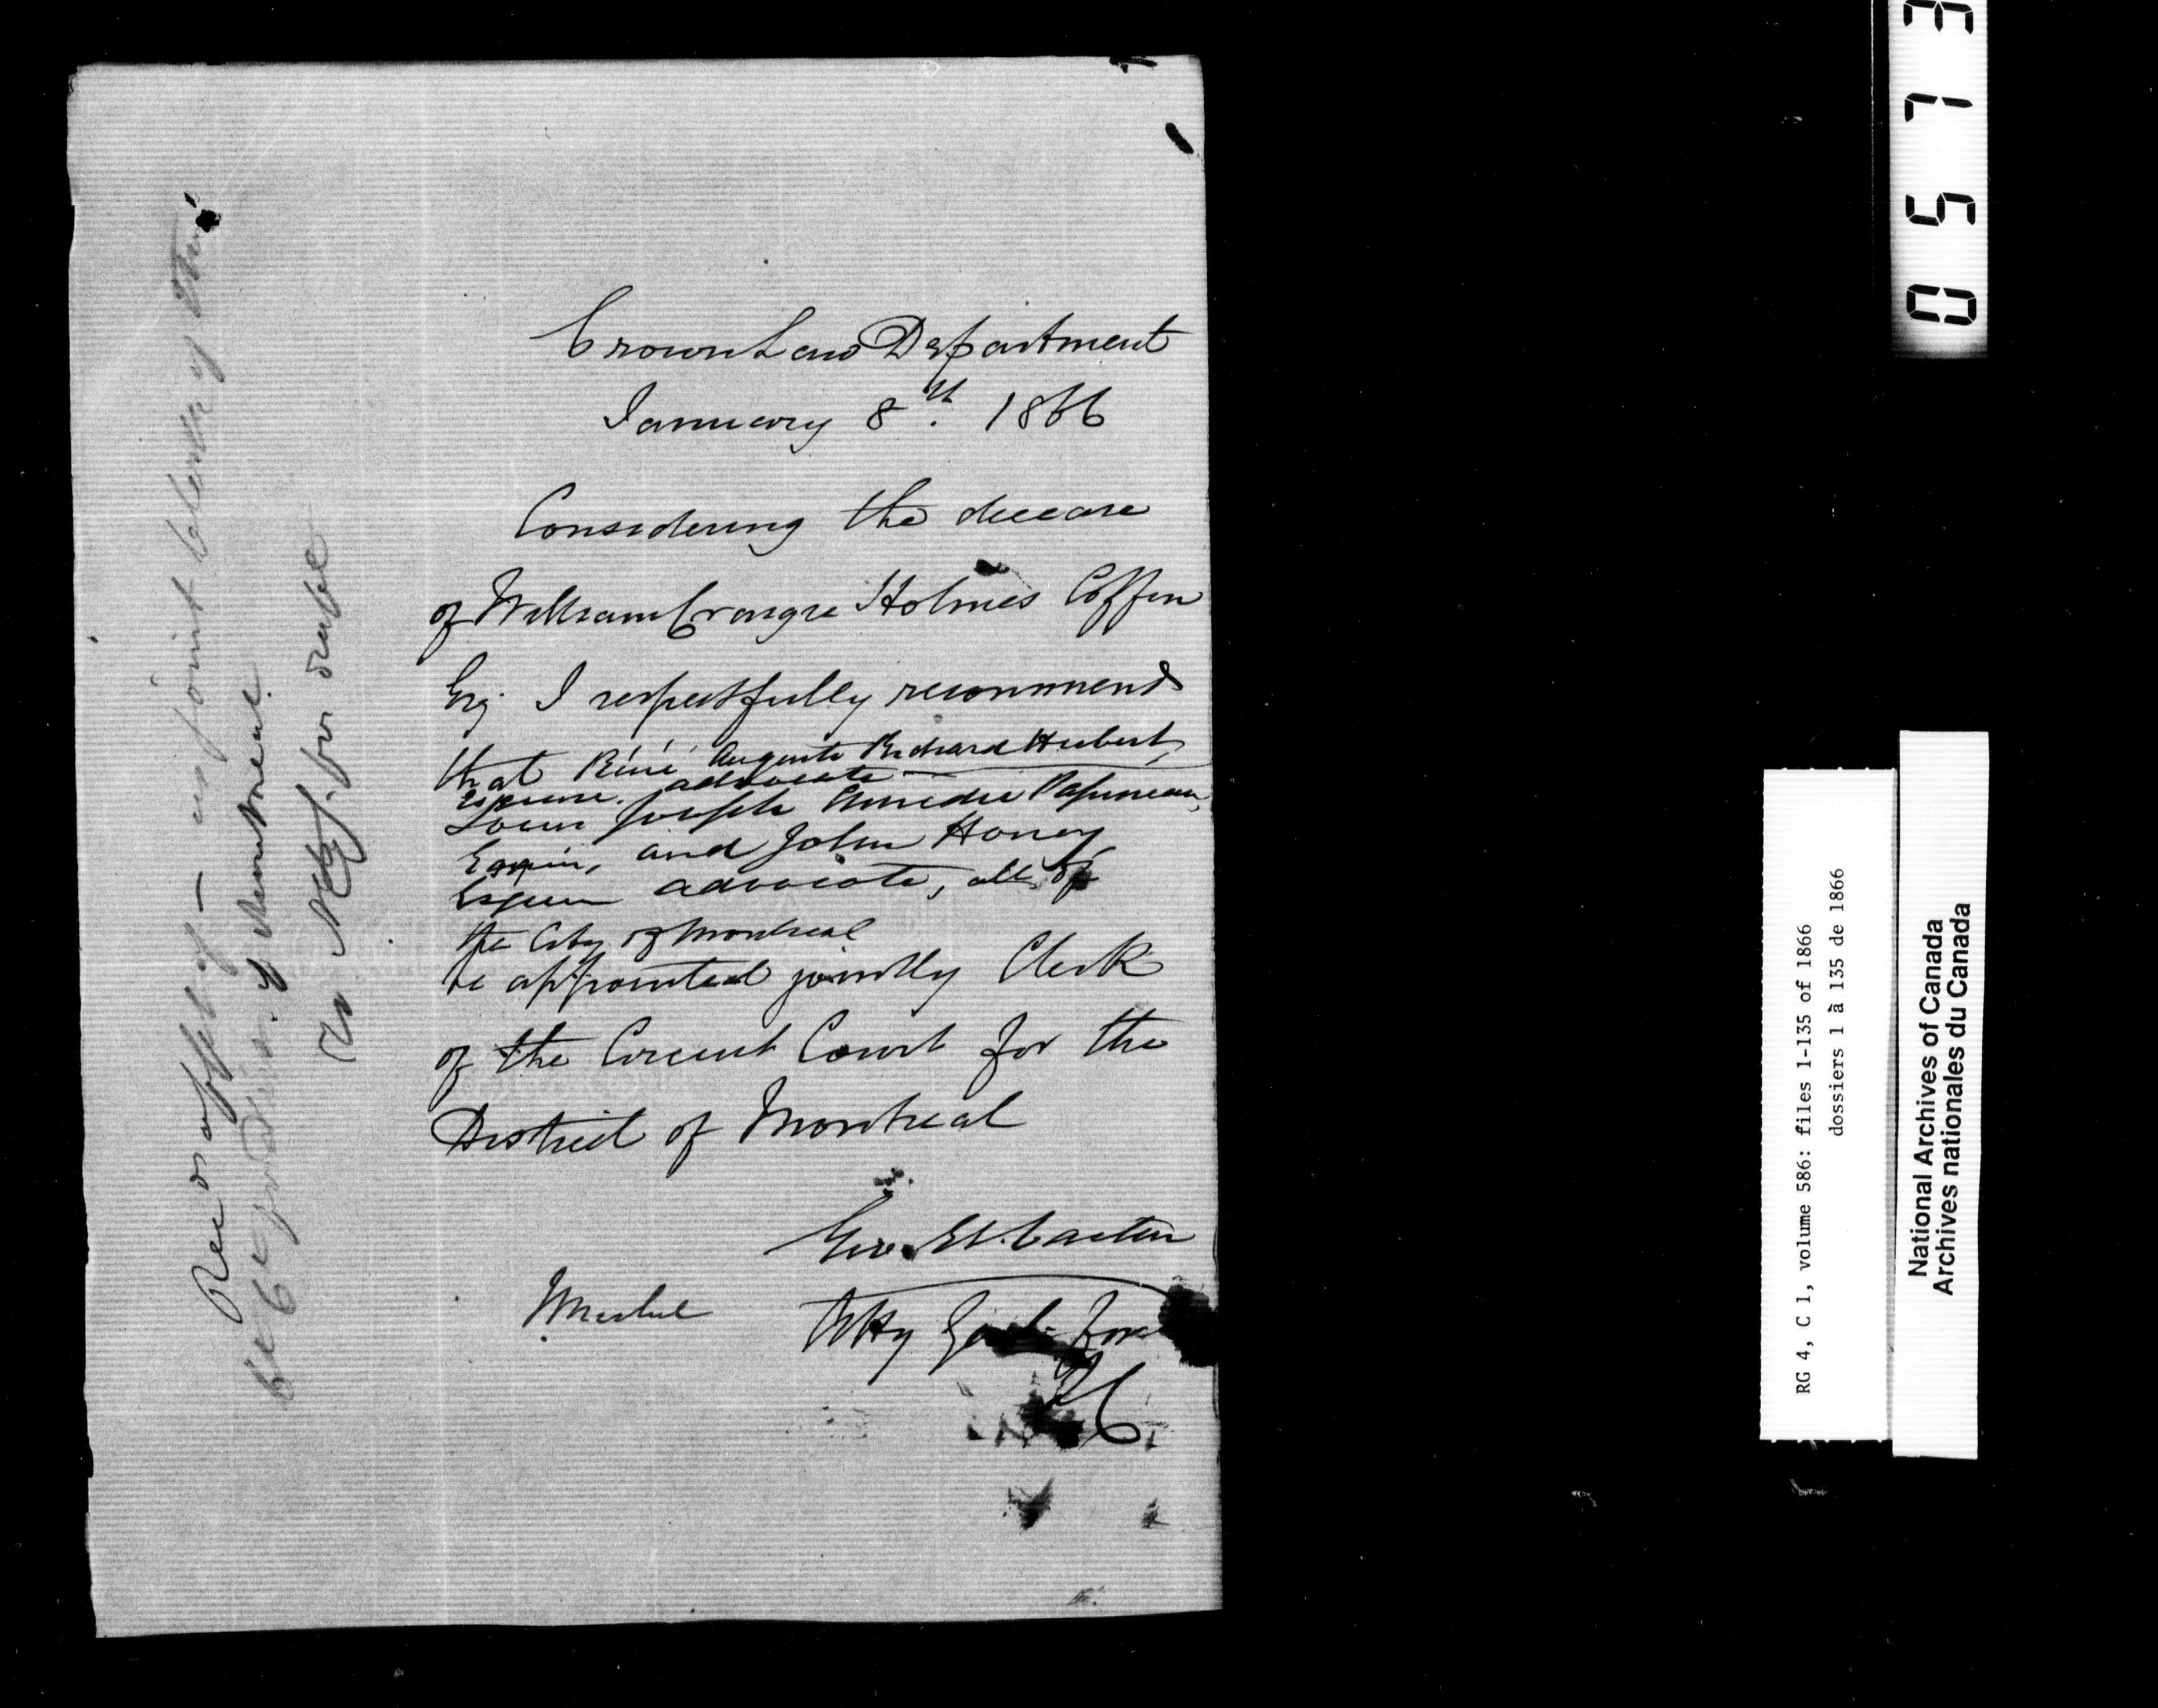 Crown Law Department
January 8th. 1866
Considering the decease
of William Craigie Holmes Coffin
Esq. I respectfully recommend
that Réné Auguste Richard Hubert,
Esquire. advocate
Louis Joseph Amedée Papineau,
Esquire, and John Honey
Esquire advocate, all of
the City of Montreal
be appointed jointly Clerk
of the Circuit Court for the
District of Montreal
Geo. Et. Cartier
Atty Genl
LC
of Montreal.
for
0573
RG 4, C 1, volume 586: files 1-135 of 1866
dossiers 1 à 135 de 1866
National Archives of Canada
Archives nationales du Canada